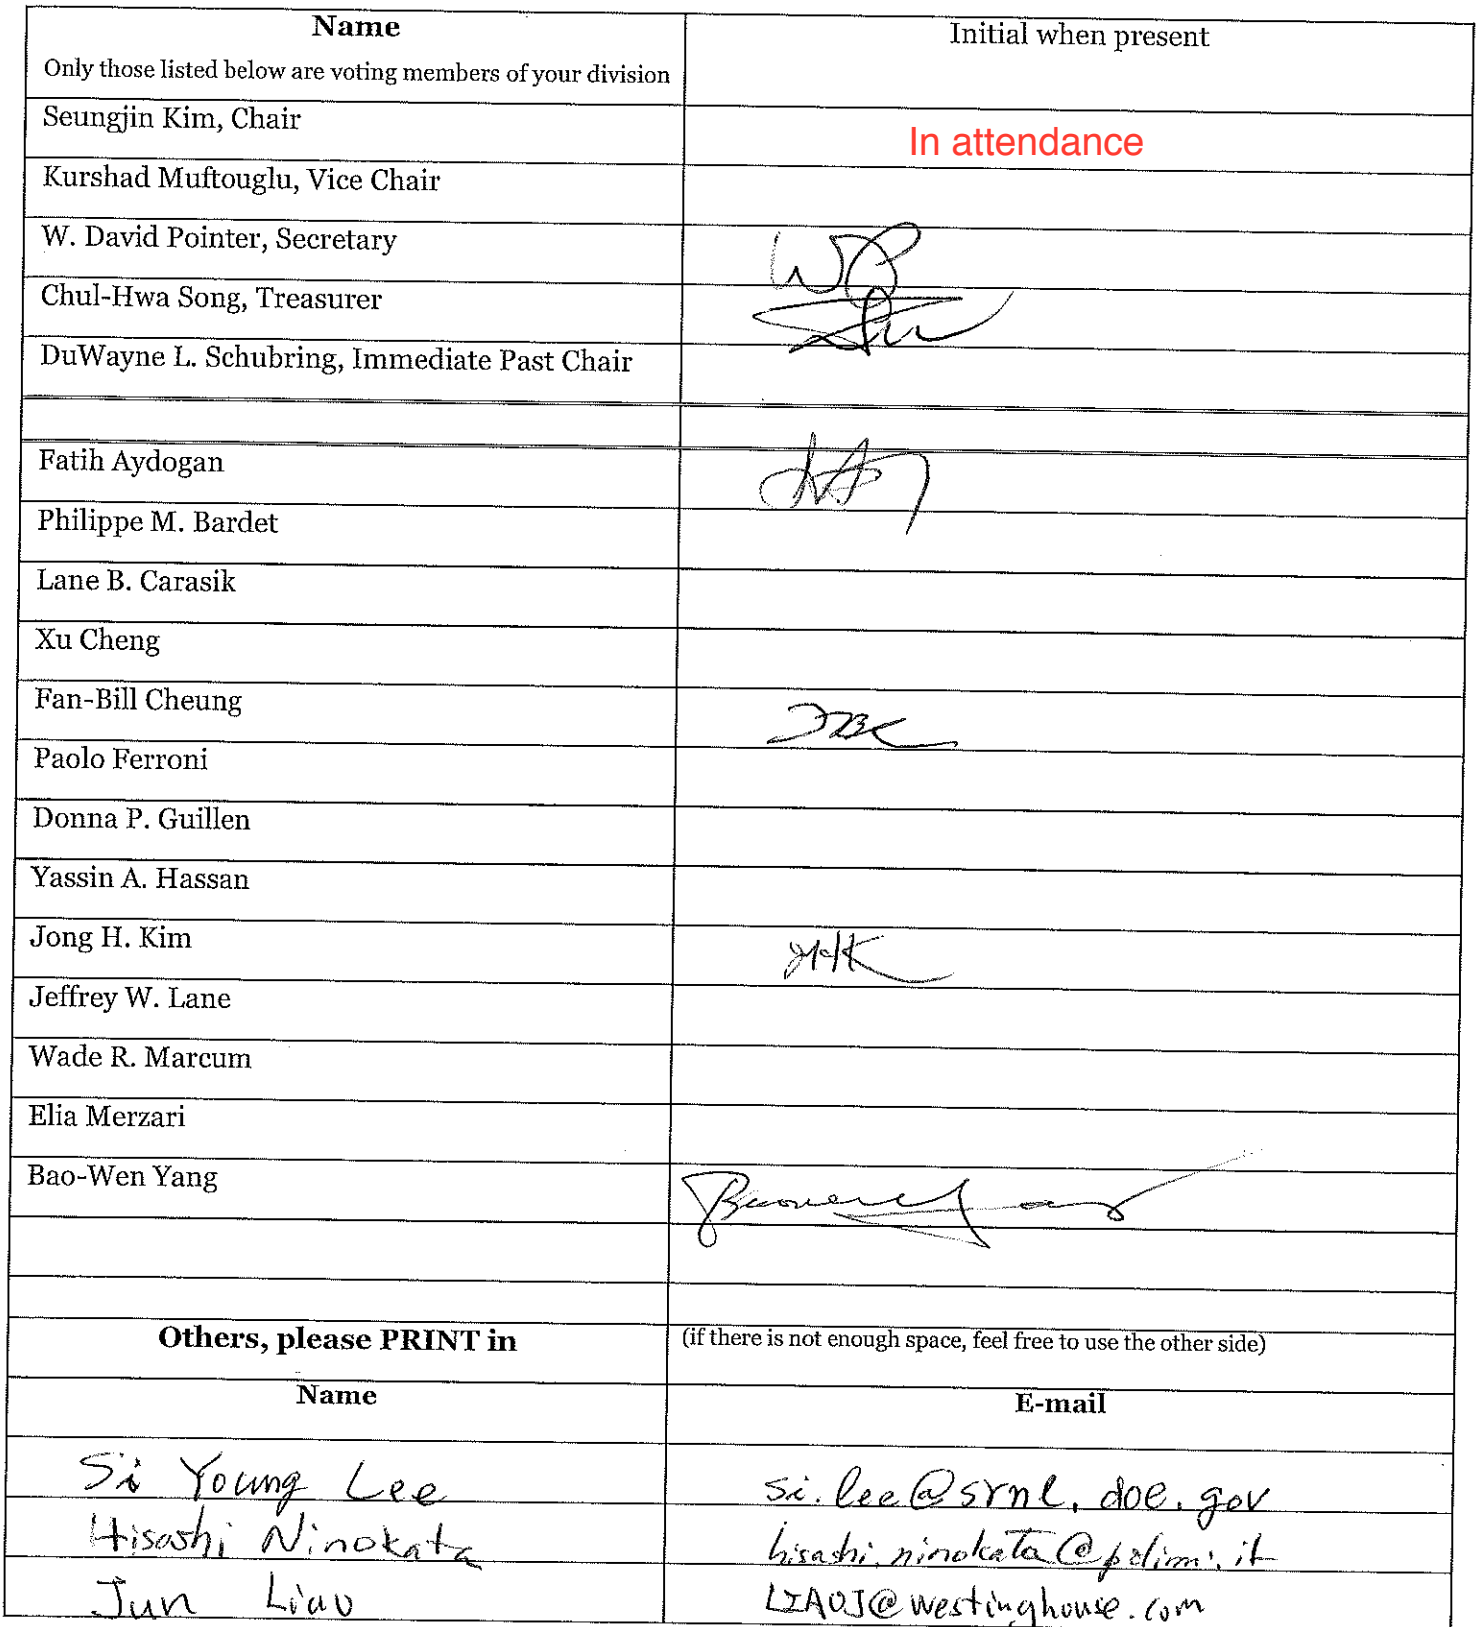 Name
Initial when present
Only those listed below are voting members of your division
Seungjin Kim, Chair
In attendance
Kurshad Muftouglu, Vice Chair
W. David Pointer, Secretary
WP
Chul-Hwa Song, Treasurer
DuWayne L. Schubring, Immediate Past Chair
Fatih Aydogan
Philippe M. Bardet
Lane B. Carasik
Xu Cheng
Fan-Bill Cheung
FBC
Paolo Ferroni
Donna P. Guillen
Yassin A. Hassan
Jong H. Kim
JHK
Jeffrey W. Lane
Wade R. Marcum
Elia Merzari
Bao-Wen Yang
Others, please PRINT in
(if there is not enough space, feel free to use the other side)
Name
E-mail
Si Young Lee
si.lee@srnl.doe.gov
Hisashi Ninokata
hisashi.ninokata@polimi.it
Jun Liao
LIAOJ@westinghouse.com